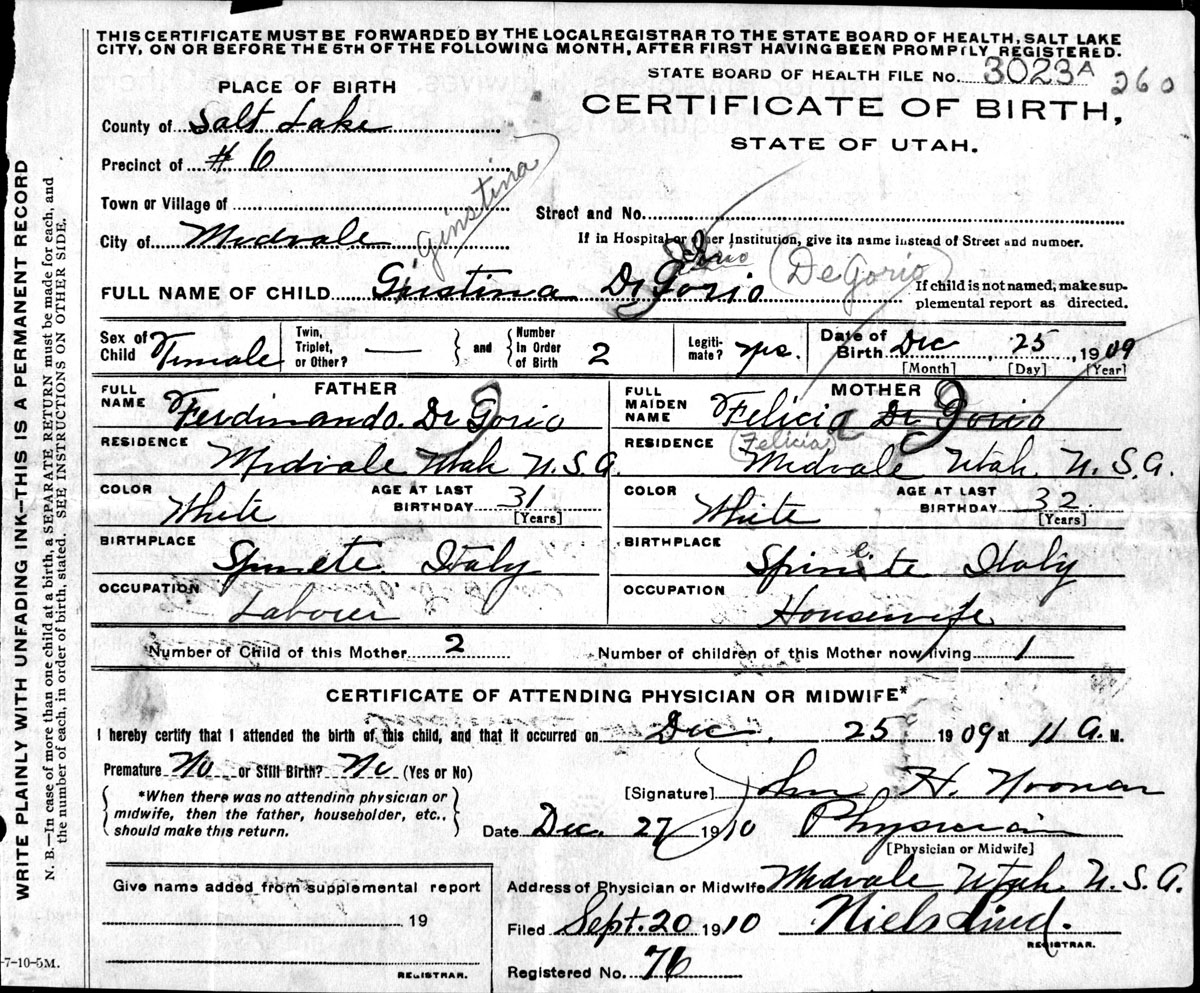 THIS CERTIFICATE MUST BE FORWARDED BY THE LOCALREGISTRAR TO THE STATE BOARD OF HEALTH, SALT LAKE
CITY, ON OR BEFORE THE 5TH OF THE FOLLOWING MONTH, AFTER FIRST HAVING BEEN PROMPTLY REGISTERED.
STATE BOARD OF HEALTH FILE No. 3023A 260
PLACE OF BIRTH
CERTIFICATE OF BIRTH,
STATE OF UTAH.
County of Salt Lake
Precinct of # 6
Town or Village of
Street and No.
City of Midvale
Ginstina
If in Hospital or other Institution, give its name instead of Street and number.
FULL NAME OF CHILD Giustina De Gorio (De Gorio)
If child is not named, make sup-
plemental report as directed.
Sex of Child Female
Twin, Triplet, or Other? —
and
Number In Order of Birth 2
Legiti-mate? yes.
Date of Birth Dec, 25, 1909
[Month] [Day] [Year]
FATHER
FULL NAME Ferdinando De Gorio
RESIDENCE Midvale Utah U.S.A.
COLOR White AGE AT LAST BIRTHDAY 31
[Years]
BIRTHPLACE Spinete Italy
OCCUPATION Laborer
MOTHER
FULL MAIDEN NAME Felicia De Gorio
(Felicia)
RESIDENCE Midvale Utah U.S.A.
COLOR White AGE AT LAST BIRTHDAY 32
[Years]
BIRTHPLACE Spinite Italy
OCCUPATION Housewife
Number of Child of this Mother 2 Number of children of this Mother now living 1
CERTIFICATE OF ATTENDING PHYSICIAN OR MIDWIFE*
I hereby certify that I attended the birth of this child, and that it occurred on Dec. 25 1909 at 11 A. M.
Premature No or Still Birth? No (Yes or No)
*When there was no attending physician or
midwife, then the father, householder, etc.,
should make this return.
[Signature] John H. Noonan
Date Dec. 27 1910 Physician
[Physician or Midwife]
Give name added from supplemental report
19
REGISTRAR.
Address of Physician or Midwife Midvale Utah U.S.A.
Filed Sept. 20 1910 Niels Lind.
REGISTRAR.
Registered No. 76
-7-10-5M.
WRITE PLAINLY WITH UNFADING INK—THIS IS A PERMANENT RECORD
N. B.—In case of more than one child at a birth, a SEPARATE RETURN must be made for each, and
the number of each, in order of birth, stated. SEE INSTRUCTIONS ON OTHER SIDE.